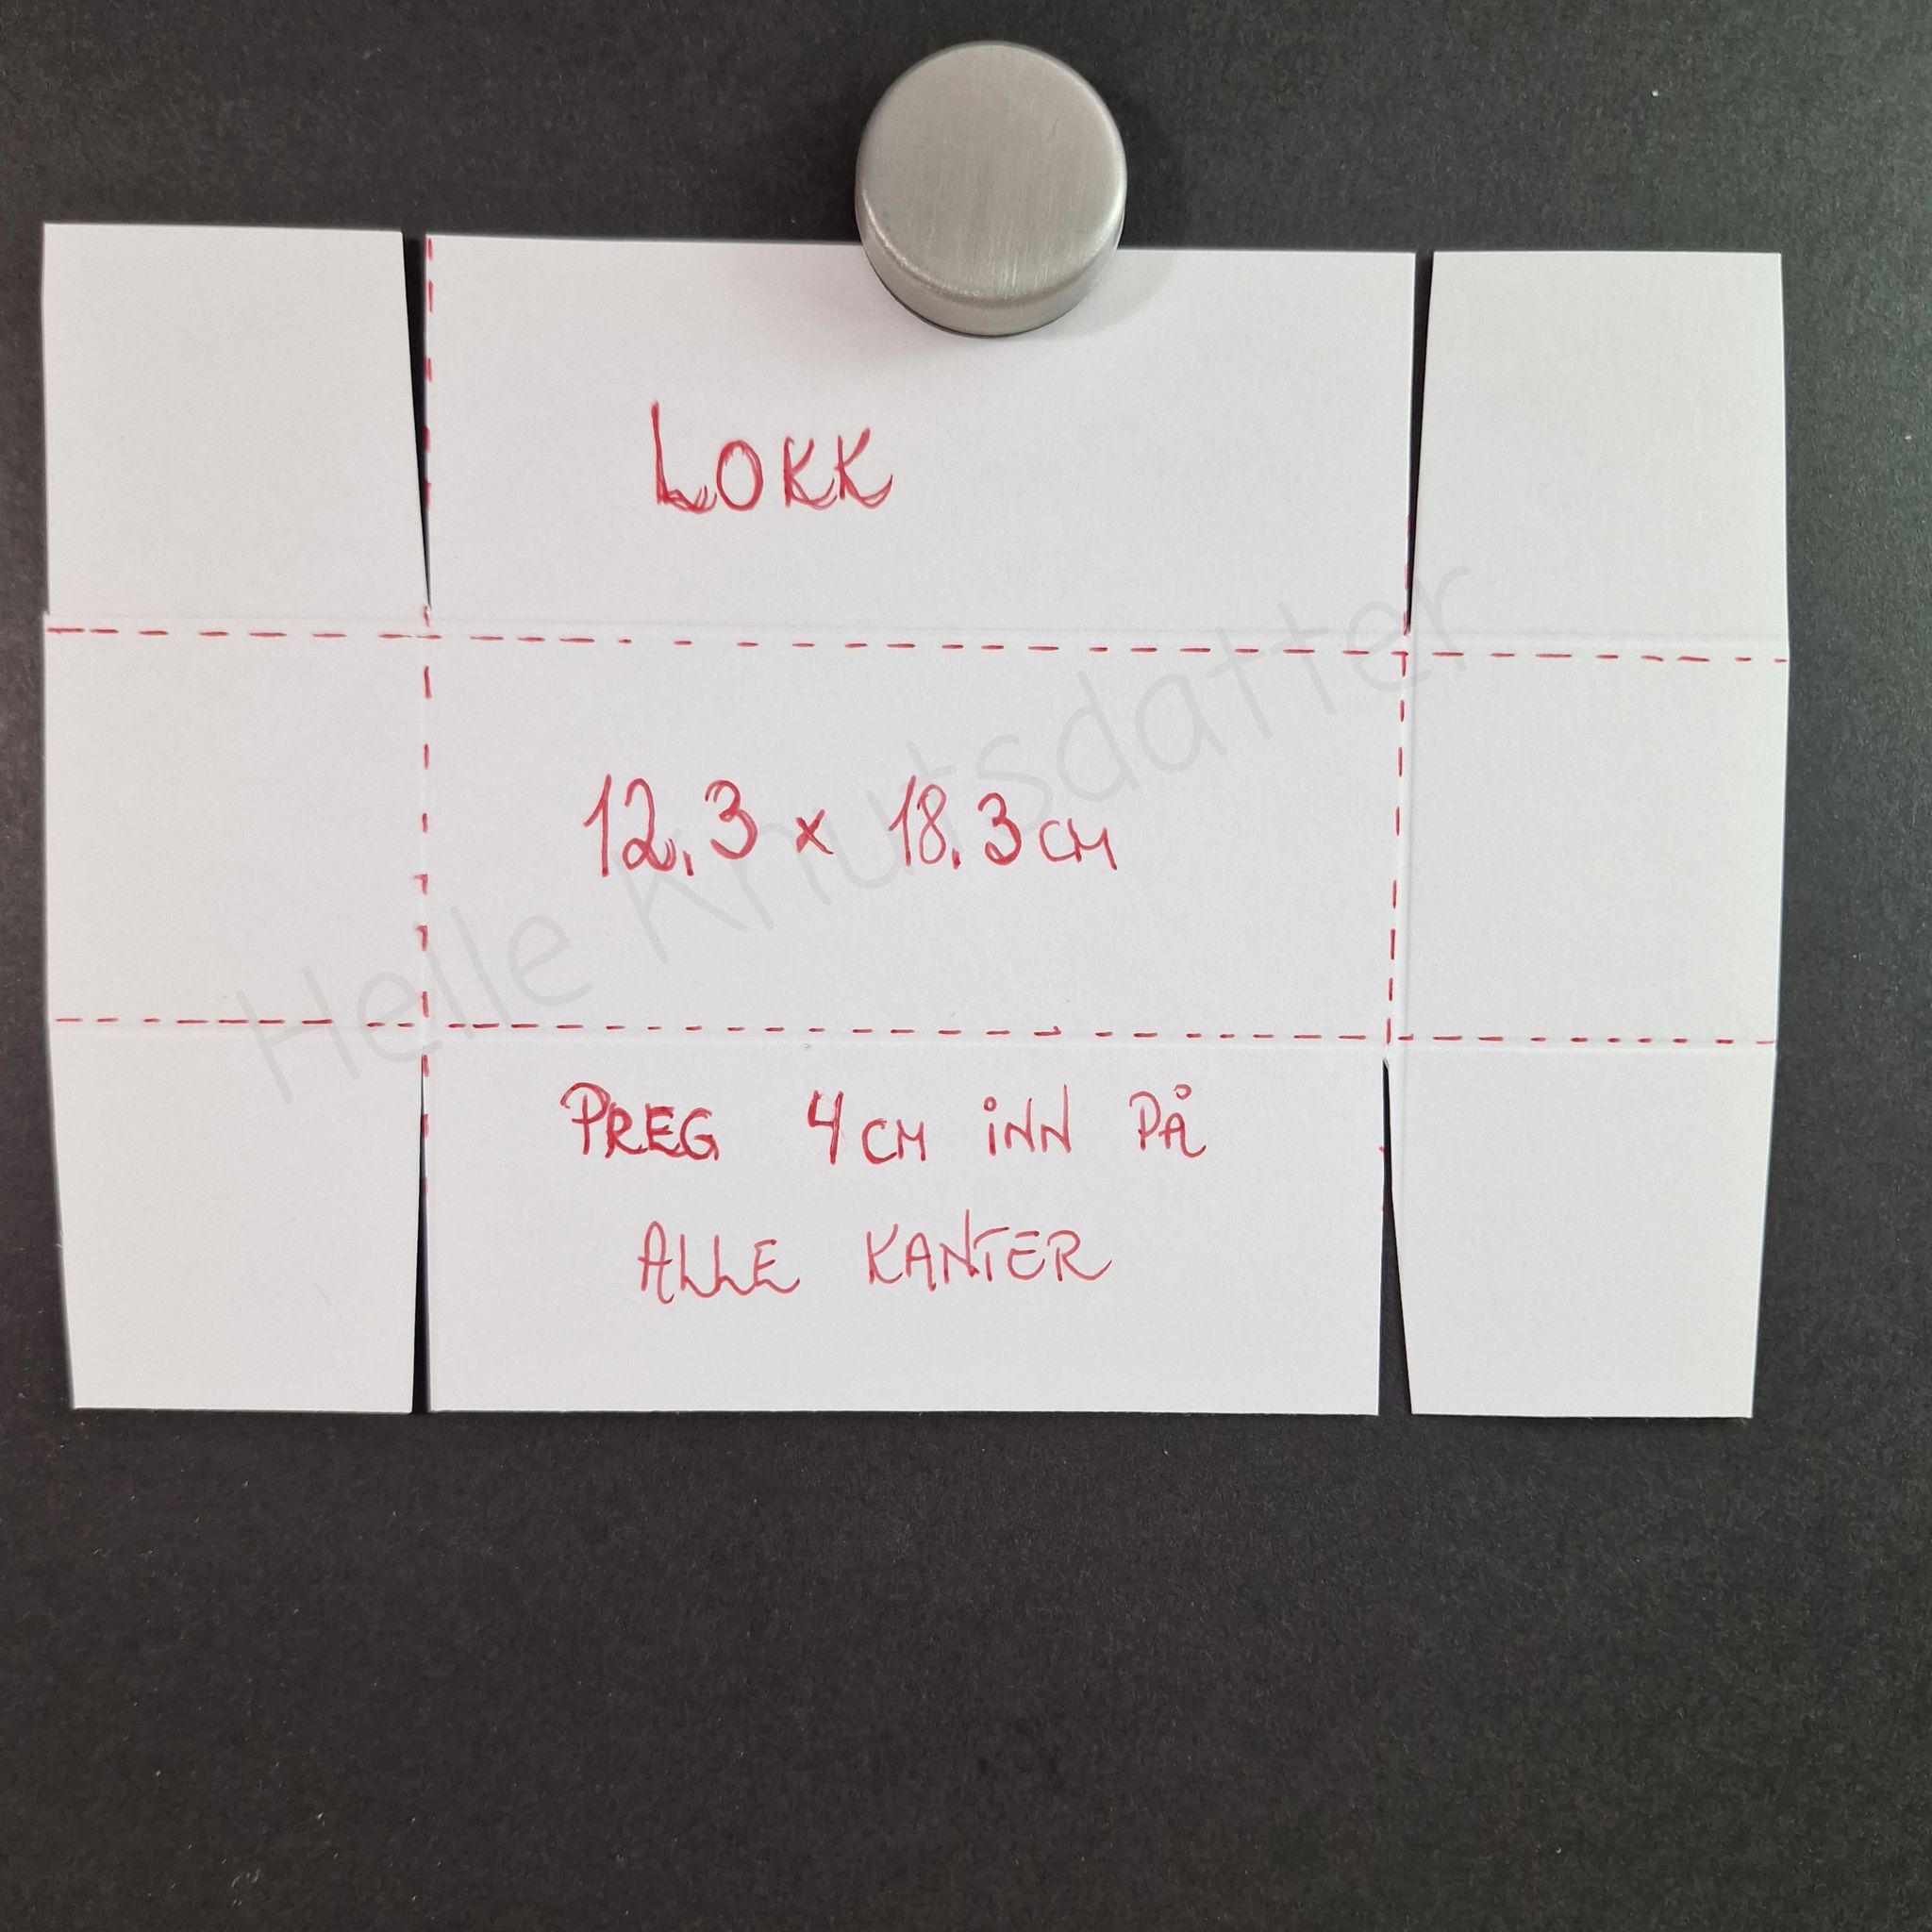 LOKK
12.3 x 18.3 CM
PREG 4 CM INN PÅ
ALLE KANTER
Helle Knutsdatter